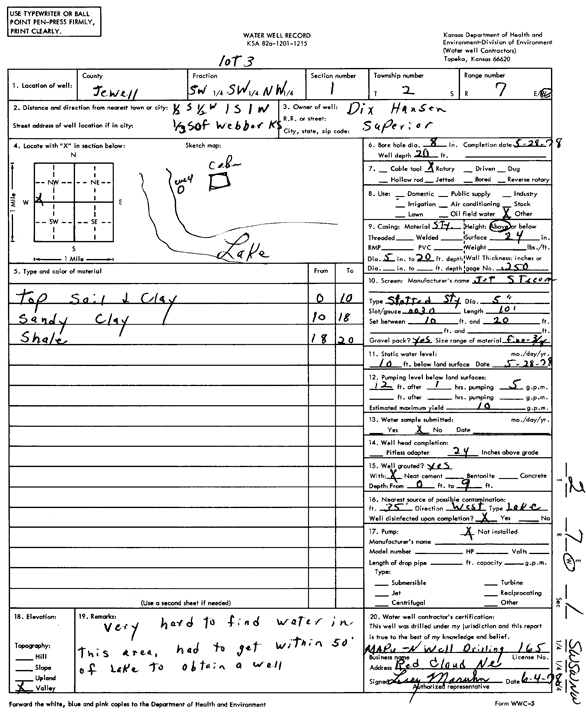 USE TYPEWRITER OR BALL
POINT PEN-PRESS FIRMLY,
PRINT CLEARLY.
WATER WELL RECORD
KSA 82a-1201-1215
Kansas Department of Health and
Environment-Division of Environment
(Water well Contractors)
Topeka, Kansas 66620
Lot 3
1. Location of well:
County
Jewell
Fraction
SW 1/4 SW 1/4 NW 1/4
Section number
1
Township number
T 2 S
Range number
R 7 E/W
2. Distance and direction from nearest town or city: 1/3 S 1/2 W 1 S 1 W
Street address of well location if in city: 1/3 S of Webber KS
3. Owner of well: Dix Hansen
R.R. or street:
City, state, zip code: Superior
4. Locate with "X" in section below:
N
NW NE
W X E
SW SE
S
1 Mile
1 Mile
Sketch map:
Cabin
well
Lake
6. Bore hole dia. 8 in. Completion date 5-28-78
Well depth 20 ft.
7. Cable tool X Rotary Driven Dug
Hollow rod Jetted Bored Reverse rotary
8. Use: Domestic Public supply Industry
Irrigation Air conditioning Stock
Lawn Oil field water X Other
9. Casing: Material Sty. Height: Above or below
Threaded Welded Surface 24 in.
RMP PVC Weight lbs./ft.
Dia. 5 in. to 20 ft. depth Wall Thickness: inches or
Dia. in. to ft. depth gage No. .250
10. Screen: Manufacturer's name Jet Stream
Type Slotted Sty Dia. 5"
Slot/gauze .0030 Length 10'
Set between 10 ft. and 20 ft.
ft. and ft.
Gravel pack? yes Size range of material fine-3/4
11. Static water level: mo./day/yr.
10 ft. below land surface Date 5-28-78
12. Pumping level below land surfaces:
12 ft. after 1 hrs. pumping 5 g.p.m.
ft. after hrs. pumping g.p.m.
Estimated maximum yield 10 g.p.m.
13. Water sample submitted: mo./day/yr.
Yes X No Date
14. Well head completion:
Pitless adapter 24 Inches above grade
15. Well grouted? yes
With: X Neat cement Bentonite Concrete
Depth: From 0 ft. to 9 ft.
16. Nearest source of possible contamination:
ft. 75' Direction West Type Lake
Well disinfected upon completion? X Yes No
17. Pump: X Not installed
Manufacturer's name
Model number HP Volts
Length of drop pipe ft. capacity g.p.m.
Type:
Submersible Turbine
Jet Reciprocating
Centrifugal Other
5. Type and color of material From To
Top Soil & Clay 0 10
Sandy Clay 10 18
Shale 18 20
(Use a second sheet if needed)
18. Elevation:
Topography:
Hill
Slope
Upland
X Valley
19. Remarks:
Very hard to find water in
this area, had to get within 50'
of Lake to obtain a well
20. Water well contractor's certification:
This well was drilled under my jurisdiction and this report
is true to the best of my knowledge and belief.
Well Drilling 165
Business name License No.
Address Red Cloud Ne
Signed Date 6-4-78
Authorized representative
Forward the white, blue and pink copies to the Department of Health and Environment
Form WWC-5
2
7 E W
Sec 1
1/4 1/4 1/4 SWSWNW